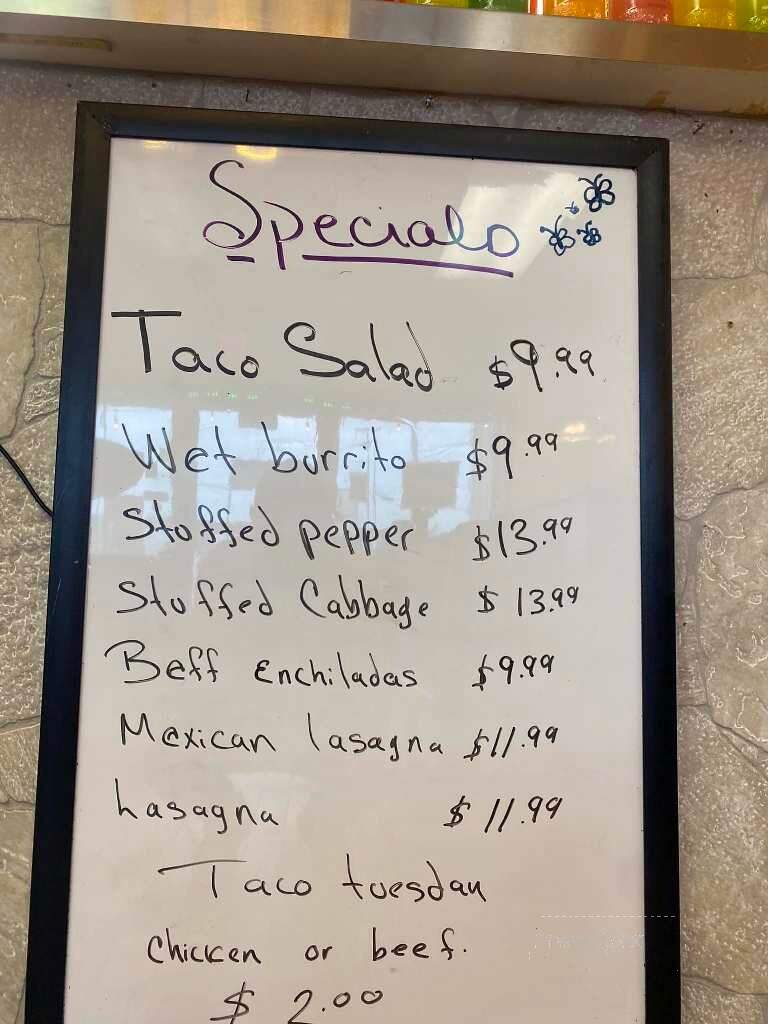 Specials
Taco Salad $9.99
Wet burrito $9.99
Stuffed pepper $13.99
Stuffed Cabbage $13.99
Beff Enchiladas $9.99
Mexican lasagna $11.99
Lasagna $11.99
Taco tuesday
Chicken or beef.
$2.00